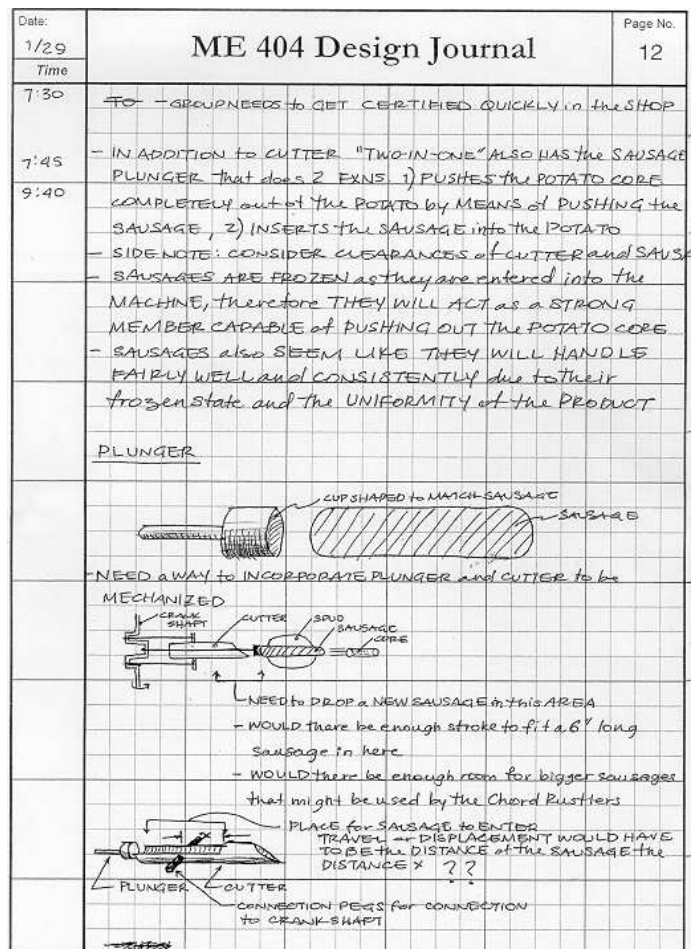 Date:
1/29
Time
ME 404 Design Journal
Page No.
12
7:30
TO - GROUP NEEDS to GET CERTIFIED QUICKLY in the SHOP
7:45
- IN ADDITION to CUTTER "TWO-IN-ONE" ALSO HAS the SAUSAGE
9:40
PLUNGER that does 2 FXNS 1) PUSHES the POTATO CORE
COMPLETELY out of the POTATO by MEANS of PUSHING the
SAUSAGE, 2) INSERTS the SAUSAGE into the POTATO
- SIDE NOTE: CONSIDER CLEARANCES of CUTTER and SAUSA
- SAUSAGES ARE FROZEN as they are entered into the
MACHINE, therefore THEY WILL ACT as a STRONG
MEMBER CAPABLE of PUSHING OUT the POTATO CORE
- SAUSAGES also SEEM LIKE THEY WILL HANDLE
FAIRLY WELL and CONSISTENTLY due to their
frozen state and the UNIFORMITY of the PRODUCT
PLUNGER
CUP SHAPED to MATCH SAUSAGE
SAUSAGE
- NEED a WAY to INCORPORATE PLUNGER and CUTTER to be
MECHANIZED
CRANK
SHAFT
CUTTER
SPUD
SAUSAGE
CORE
NEED to DROP a NEW SAUSAGE in this AREA
- WOULD thare be enough stroke to fit a 6" long
sausage in here
- WOULD there be enough room for bigger sausages
that might be used by the Chord Rustlers
PLACE for SAUSAGE to ENTER
TRAVEL or DISPLACEMENT WOULD HAVE
TO BE the DISTANCE of the SAUSAGE the
DISTANCE X ??
X
PLUNGER
CUTTER
CONNECTION PEGS for CONNECTION
to CRANKSHAFT